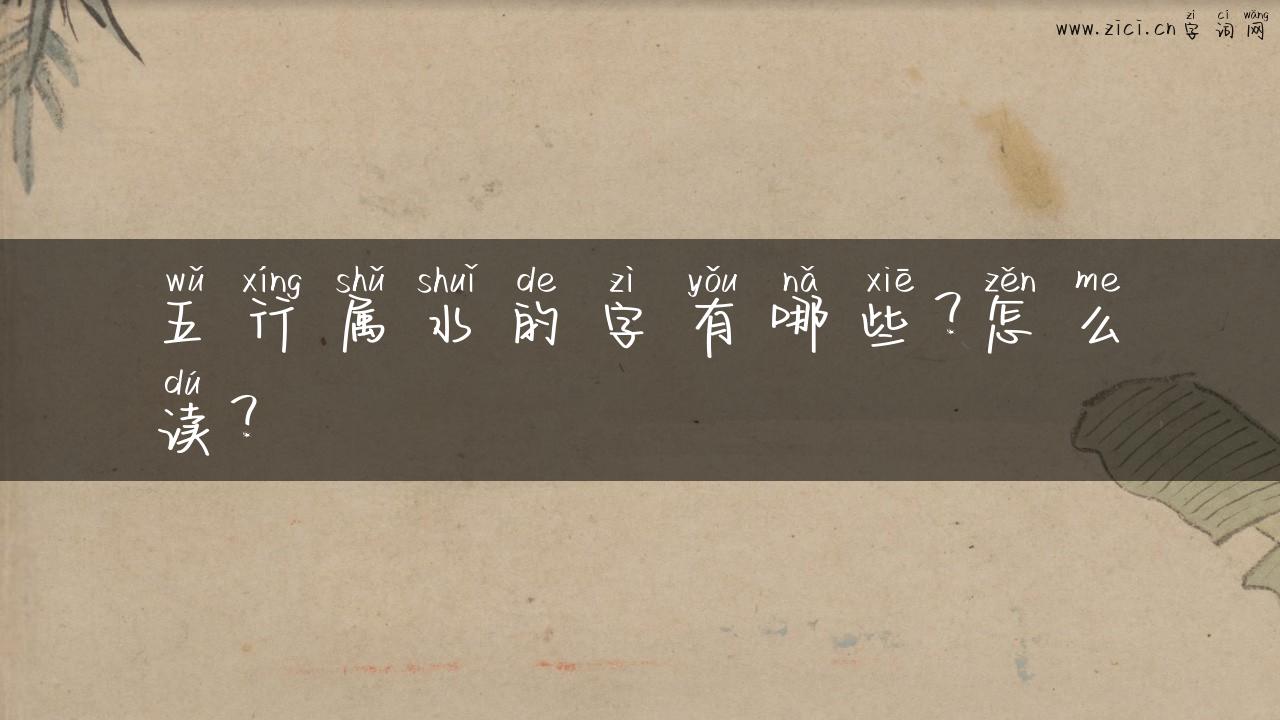 zì cí wǎng
www.zici.cn 字 词 网
wǔ xíng shǔ shuǐ de zì yǒu nǎ xiē zěn me
五 行 属 水 的 字 有 哪 些 ? 怎 么
dú
读 ?